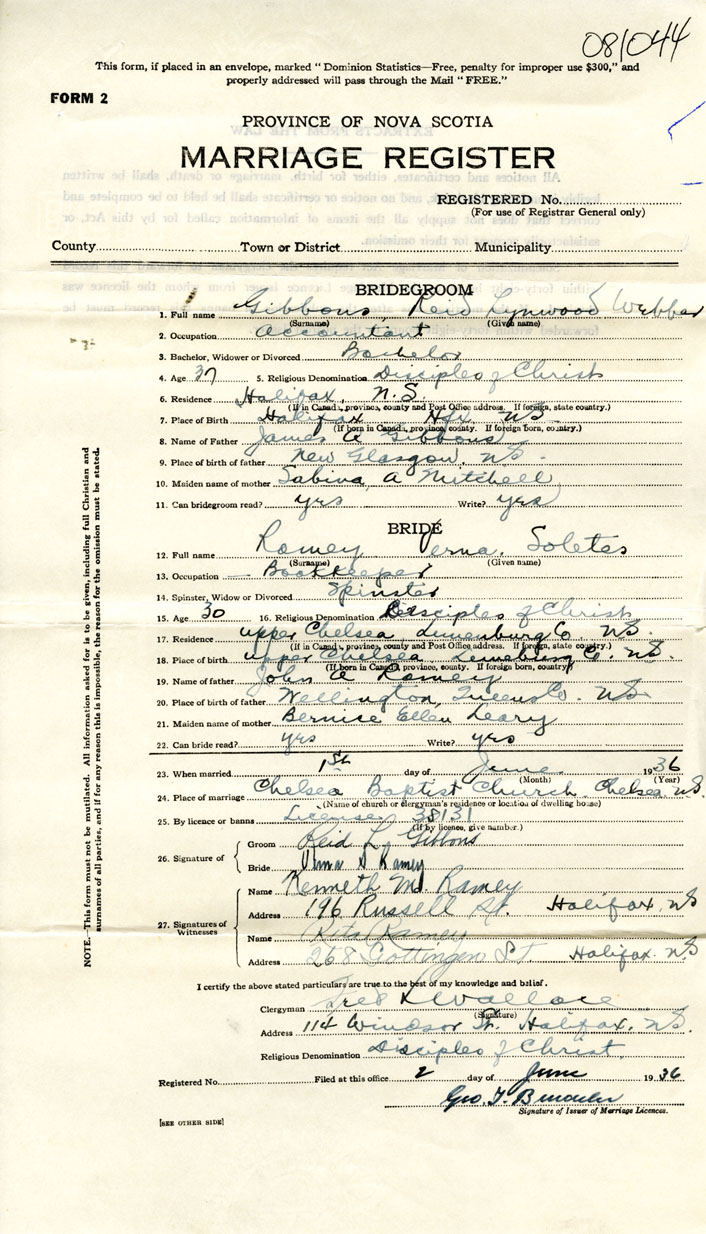 081044
This form, if placed in an envelope, marked “ Dominion Statistics—Free, penalty for improper use $300,” and
properly addressed will pass through the Mail “ FREE.”
FORM 2
PROVINCE OF NOVA SCOTIA
MARRIAGE REGISTER
REGISTERED No.
(For use of Registrar General only)
County Town or District Municipality
BRIDEGROOM
1. Full name Gibbons, Reid Lynwood Webber
(Surname) (Given name)
2. Occupation Accountant
3. Bachelor, Widower or Divorced Bachelor
4. Age 37 5. Religious Denomination Disciples of Christ
6. Residence Halifax, N.S.
(If in Canada, province, county and Post Office address. If foreign, state country.)
7. Place of Birth Halifax Hfx NS
(If born in Canada, province, county. If foreign born, country.)
8. Name of Father James A Gibbons
9. Place of birth of father New Glasgow, NS.
10. Maiden name of mother Sabina A Mitchell
11. Can bridegroom read? yes Write? yes
BRIDE
12. Full name Ramey Verna Soletes
(Surname) (Given name)
13. Occupation Bookkeeper
14. Spinster, Widow or Divorced Spinster
15. Age 30 16. Religious Denomination Disciples of Christ
17. Residence upper Chelsea Lunenburg Co NS
(If in Canada, province, county and Post Office address. If foreign, state country.)
18. Place of birth upper Chelsea Lunenburg Co. NS.
(If born in Canada, province, county. If foreign born, country.)
19. Name of father John A Ramey
20. Place of birth of father Wellington, Queens Co. NS
21. Maiden name of mother Bernise Ellen Leary
22. Can bride read? yes Write? yes
23. When married 1st day of June 1936
(Month) (Year)
24. Place of marriage Chelsea Baptist Church Chelsea, N.S.
(Name of church or clergyman's residence or location of dwelling house)
25. By licence or banns License 38131
(If by licence, give number.)
26. Signature of
Groom Reid L. Gibbons
Bride Verna S Ramey
27. Signatures of Witnesses
Name Kenneth M. Ramey
Address 196 Russell St. Halifax, NS
Name Rita Ramey
Address 268 Gottingen St Halifax NS
I certify the above stated particulars are true to the best of my knowledge and belief.
Clergyman Fred Wallace
(Signature)
Address 114 Windsor St. Halifax, N.S.
Religious Denomination Disciples of Christ.
Registered No. Filed at this office 2 day of June 1936
Geo. T.
Signature of Issuer of Marriage Licences.
[SEE OTHER SIDE]
NOTE.—This form must not be mutilated. All information asked for is to be given, including full Christian and
surnames of all parties, and if for any reason this is impossible, the reason for the omission must be stated.